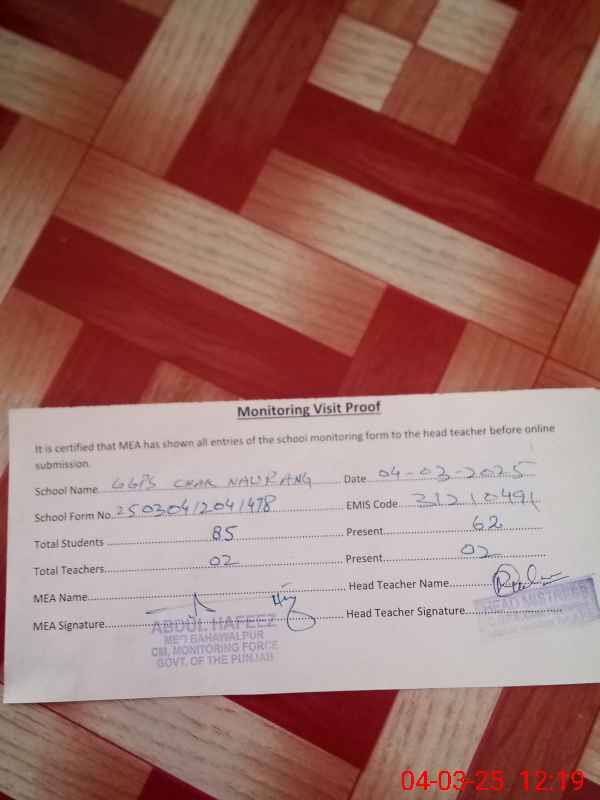 Monitoring Visit Proof
It is certified that MEA has shown all entries of the school monitoring form to the head teacher before online
submission.
School Name GGPS CHAK NAURANG Date 04-03-2025
School Form No. 25030412041498 EMIS Code 31210491
Total Students 85 Present 62
Total Teachers 02 Present 02
MEA Name Head Teacher Name
MEA Signature Head Teacher Signature
ABDUL HAFEEZ
MEO BAHAWALPUR
CM, MONITORING FORCE
GOVT. OF THE PUNJAB
HEAD MISTRESS
04-03-25 12:19